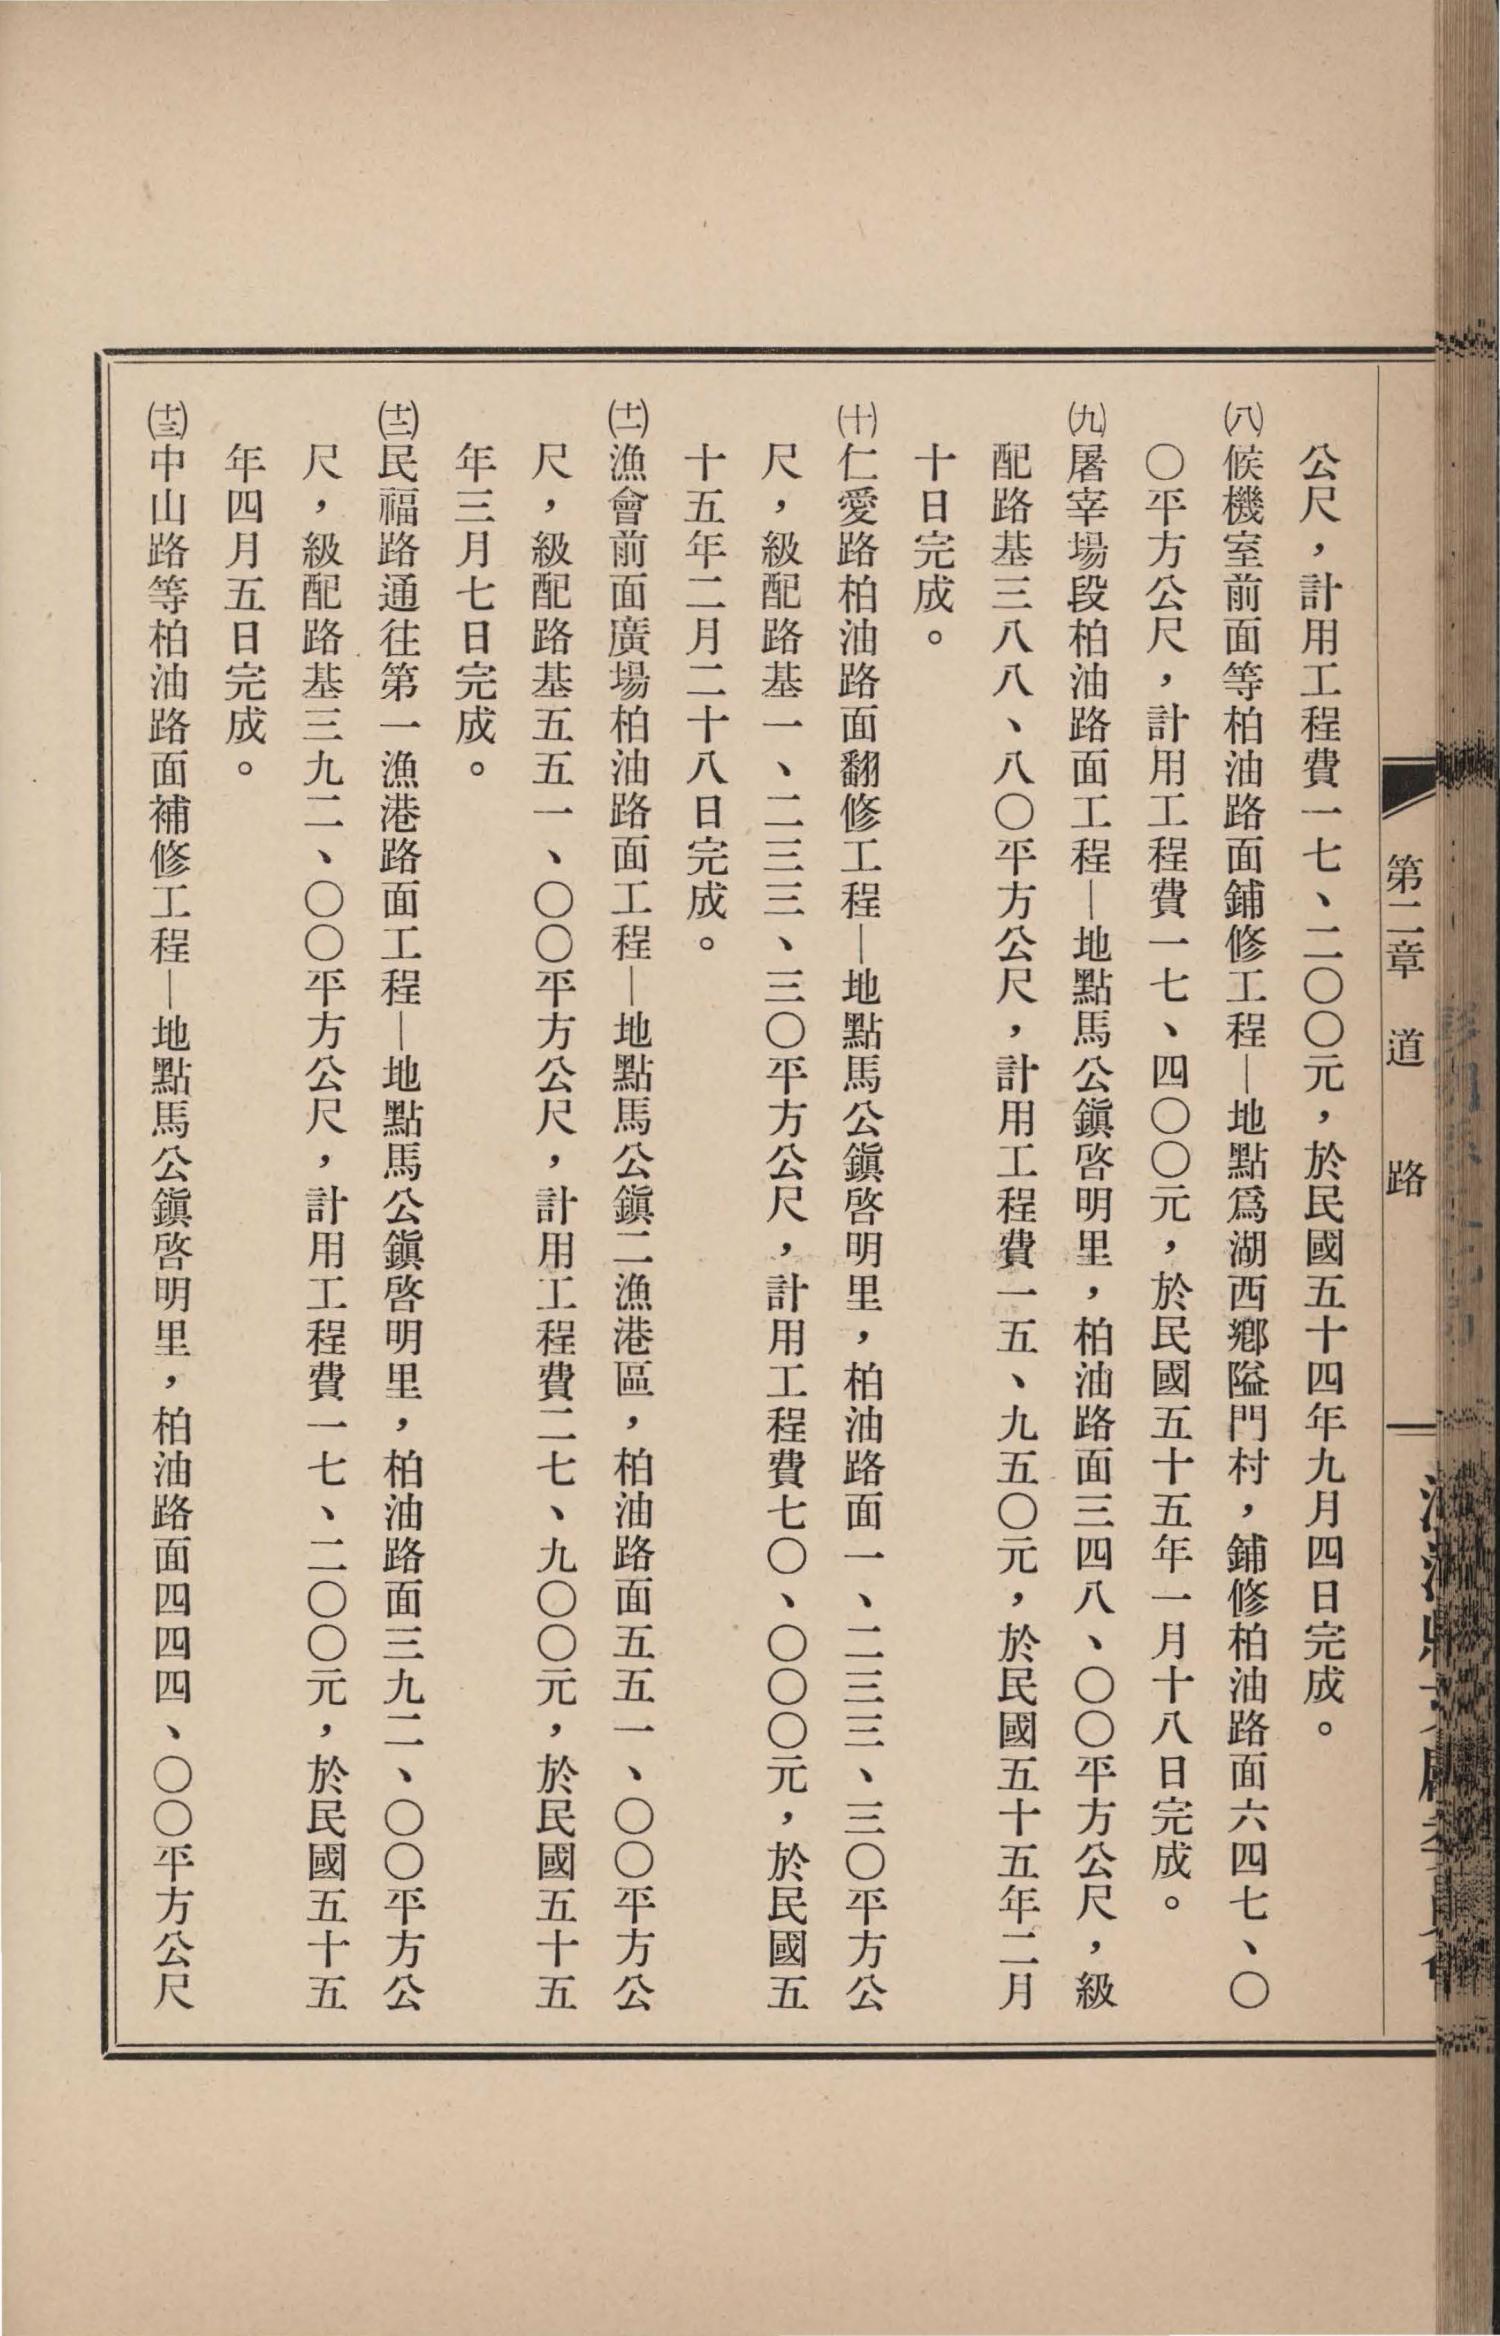 第二章　道　路
公尺，計用工程費一七、二〇〇元，於民國五十四年九月四日完成。
㈧候機室前面等柏油路面鋪修工程—地點爲湖西鄉隘門村，鋪修柏油路面六四七、〇
〇平方公尺，計用工程費一七、四〇〇元，於民國五十五年一月十八日完成。
㈨屠宰場段柏油路面工程—地點馬公鎭啓明里，柏油路面三四八、〇〇平方公尺，級
配路基三八八、八〇平方公尺，計用工程費一五、九五〇元，於民國五十五年二月
十日完成。
㈩仁愛路柏油路面翻修工程—地點馬公鎭啓明里，柏油路面一、二三三、三〇平方公
尺，級配路基一、二三三、三〇平方公尺，計用工程費七〇、〇〇〇元，於民國五
十五年二月二十八日完成。
(十一)漁會前面廣場柏油路面工程—地點馬公鎭二漁港區，柏油路面五五一、〇〇平方公
尺，級配路基五五一、〇〇平方公尺，計用工程費二七、九〇〇元，於民國五十五
年三月七日完成。
(十二)民福路通往第一漁港路面工程—地點馬公鎭啓明里，柏油路面三九二、〇〇平方公
尺，級配路基三九二、〇〇平方公尺，計用工程費一七、二〇〇元，於民國五十五
年四月五日完成。
(十三)中山路等柏油路面補修工程—地點馬公鎭啓明里，柏油路面四四四、〇〇平方公尺